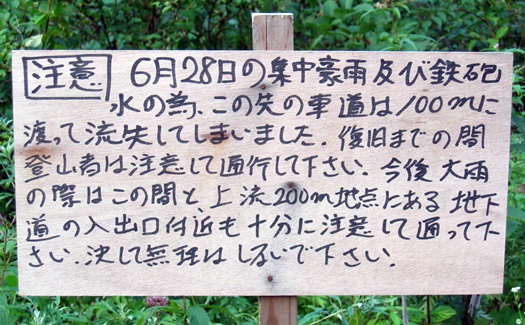 注意 6月28日の集中豪雨及び鉄砲
水の為、この先の車道は100mに
渡って流失してしまいました。復旧までの間
登山者は注意して通行して下さい。今後大雨
の際はこの間と、上流200m地点にある地下
道の入出口付近も十分に注意して通って下
さい。決して無理はしないで下さい。